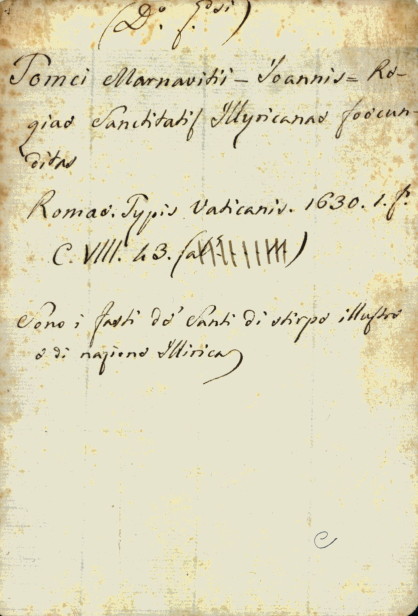 Tomci Marnavitii - Ioannis = Re-
giae Sanctitatis Illyricanae foecun-
ditas
Romae. Typis Vaticanis. 1630. 1. f.
C. VIII. 43.
Sono i fasti de' Santi di stirpe illustre
e di nazione Illirica